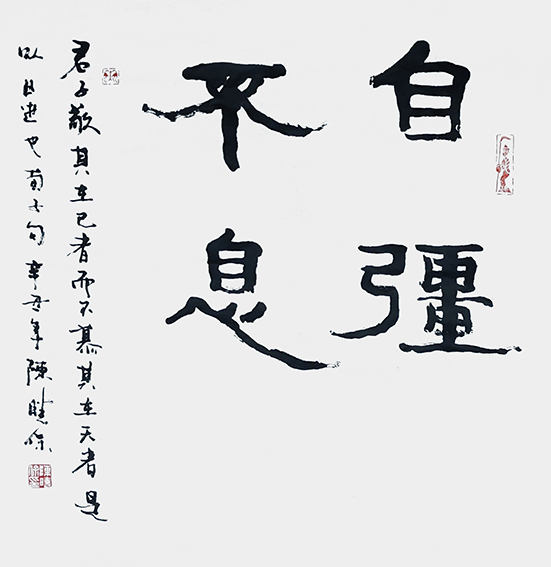 自彊
不息
君子敬其在己者而不慕其在天者是
以日進也荀子句辛丑年陳